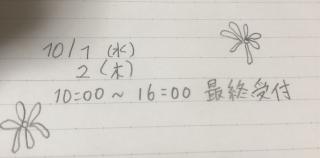 10/1 (水)
2 (木)
10:00 ~ 16:00 最終受付